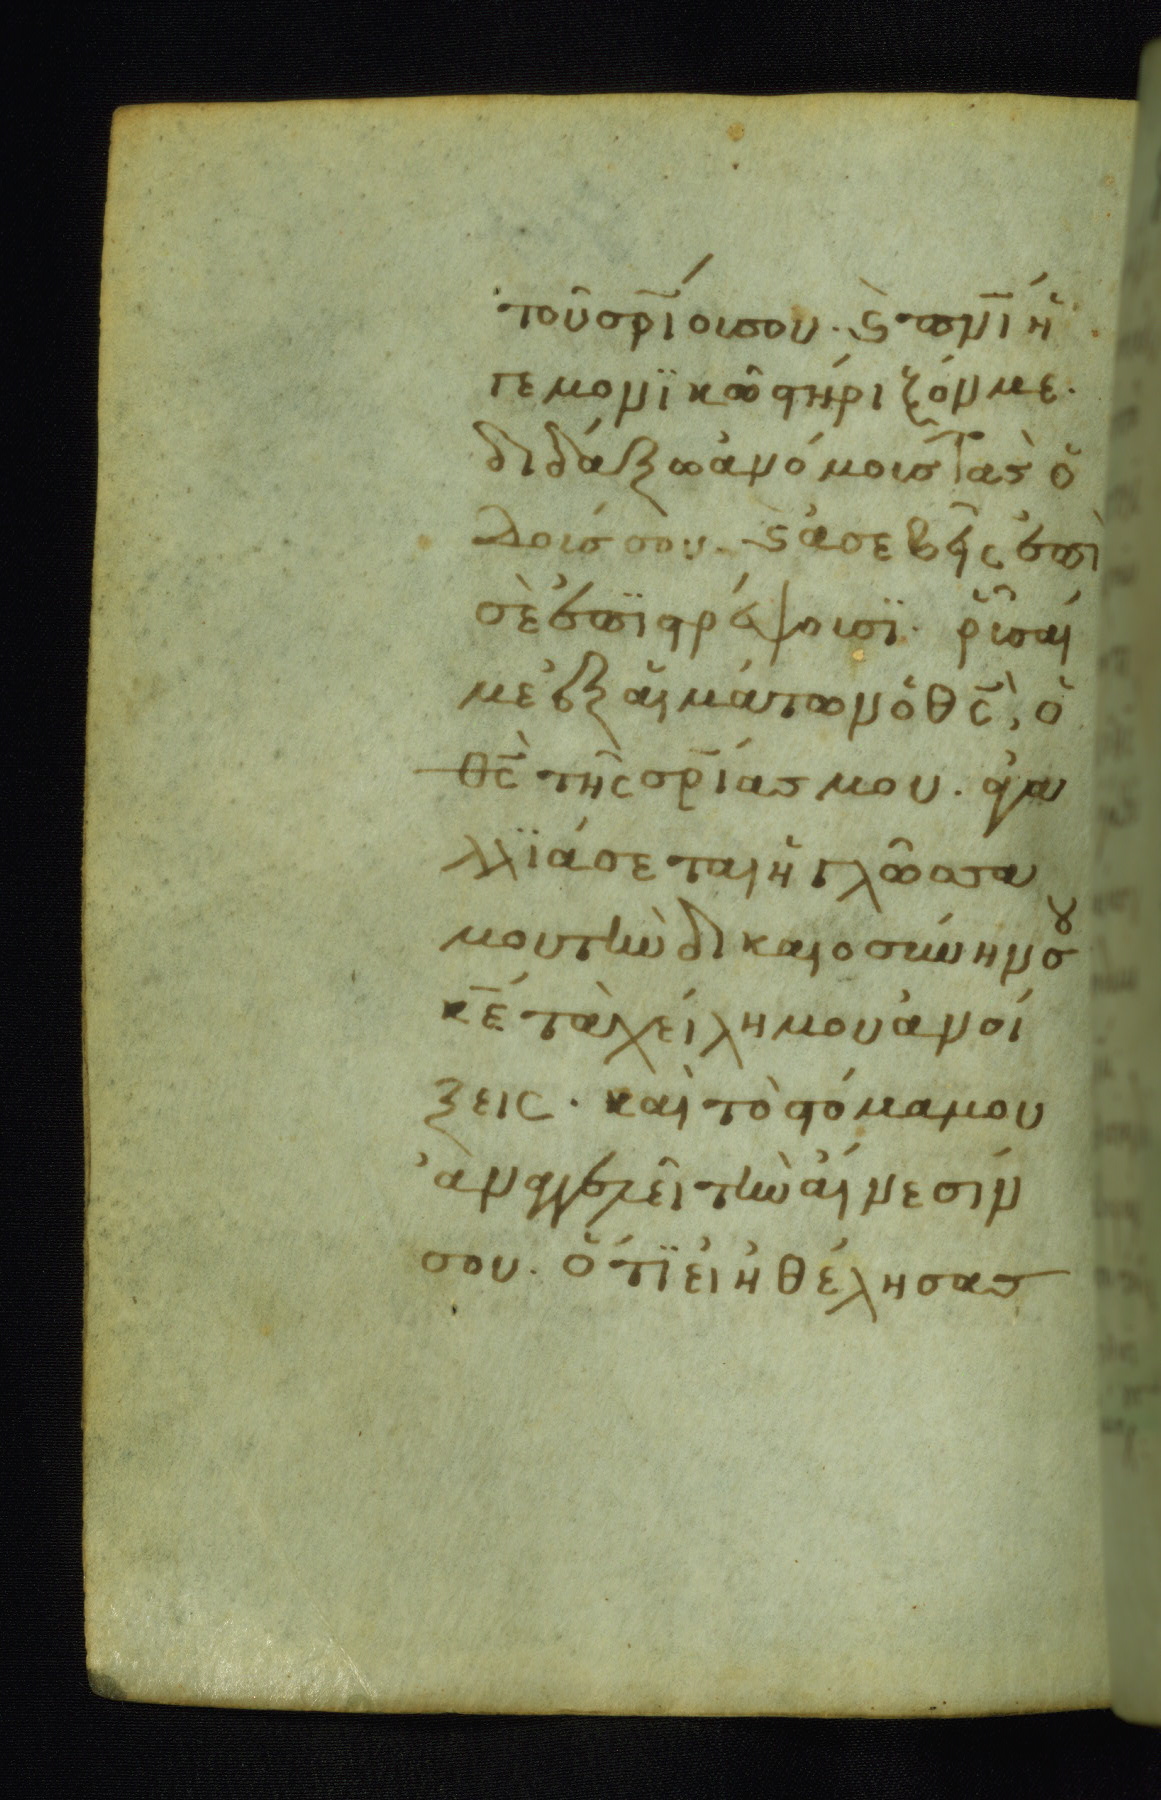 τοῦ σρ̅ίου σου. ϗ πν̅ι ἡ
γεμονϊκῶ στήριξόν με.
διδάξω ἀνόμοις τὰς ὁ
δούς σου. ϗ ἀσεβῆς ἐπὶ
σὲ ἐπϊστρέψουσϊ. ῥῦσαί
με ἐξ αἱμάτων ὁ θς̅, ὁ
θς̅ τῆς σρ̅ίας μου. ἀγα
λλϊάσεται ἡ γλῶσσα
μου τὴν δικαιοσύνην σου
κε̅ τὰ χείλη μου ἀνοί
ξεις. καὶ τὸ στόμα μου
ἀναγγελεῖ τὴν αἴνεσίν
σου. ὅτϊ εἰ ἠθέλησας